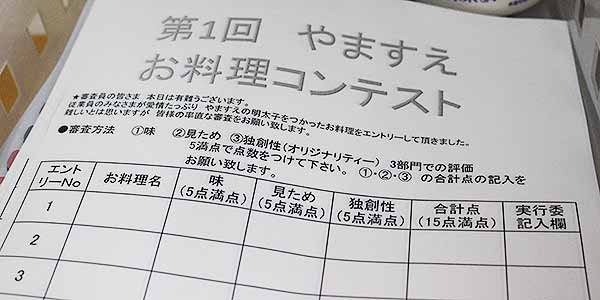 第1回 やますえ
お料理コンテスト
★審査員の皆さま 本日は有難うございます。
従業員のみなさまが愛情たっぷり やますえの明太子をつかったお料理をエントリーして頂きました。
難しいとは思いますが 皆様の率直な審査をお願い致します。
●審査方法 ①味 ②見ため ③独創性(オリジナリティー) 3部門での評価
5満点で点数をつけて下さい。 ①・②・③ の合計点の記入を
お願い致します。
エント
リーNo
お料理名
味
(5点満点)
見ため
(5点満点)
独創性
(5点満点)
合計点
(15点満点)
実行委
記入欄
1
2
3